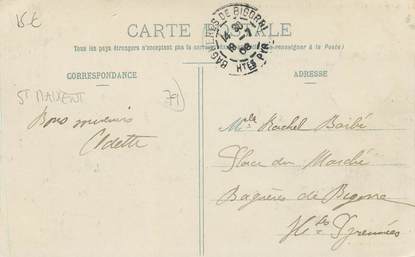 15€
CARTE POSTALE
Tous les pays étrangers n'acceptent pas la
se renseigner à la Poste)
BAGNÈRES DE BIGORRE
14 30
18 -7
08
HTES PYR.
CORRESPONDANCE
ADRESSE
ST MAIXENT
79
Bons souvenirs
Odette
Mlle Rachel Barbé
Place du Marché
Bagnères de Bigorre
Htes Pyrénées